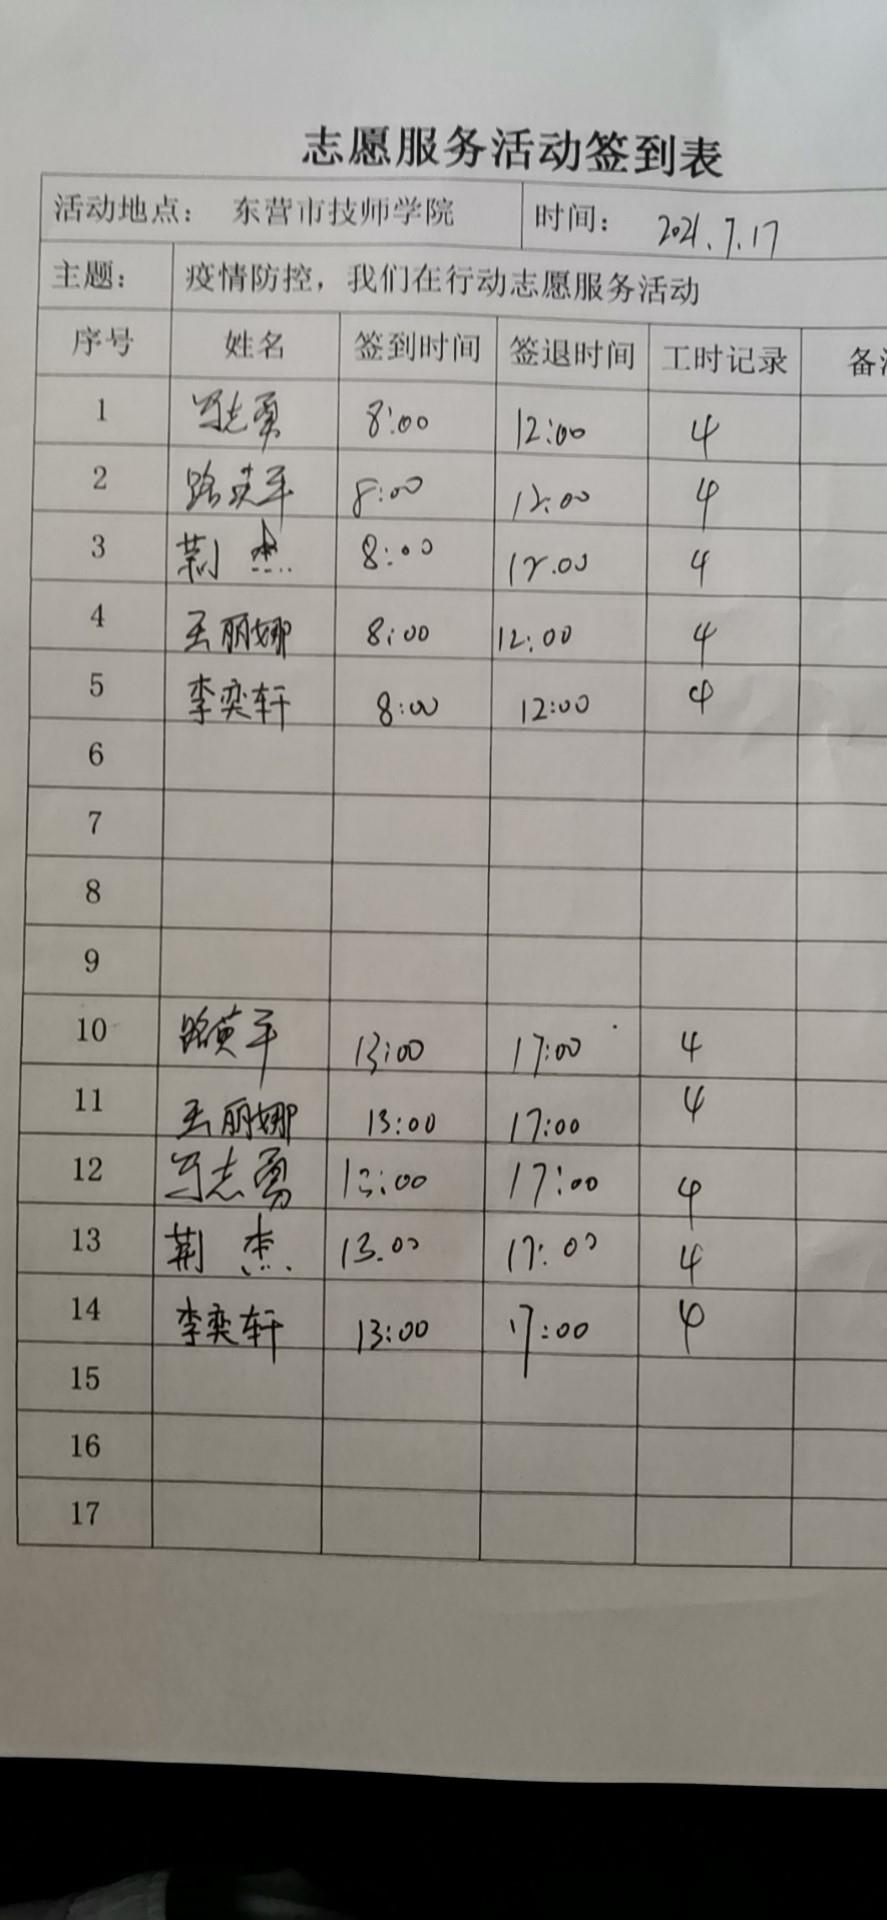 志愿服务活动签到表
活动地点： 东营市技师学院 时间： 2021.7.17
主题： 疫情防控，我们在行动志愿服务活动
序号 姓名 签到时间 签退时间 工时记录 备
1 志勇 8:00 12:00 4
2 路英平 8:00 12:00 4
3 荆杰 8:00 12:00 4
4 王丽娜 8:00 12:00 4
5 李奕轩 8:00 12:00 4
6
7
8
9
10 路英平 13:00 17:00 4
11 王丽娜 13:00 17:00 4
12 志勇 13:00 17:00 4
13 荆杰 13.00 17:00 4
14 李奕轩 13:00 17:00 4
15
16
17